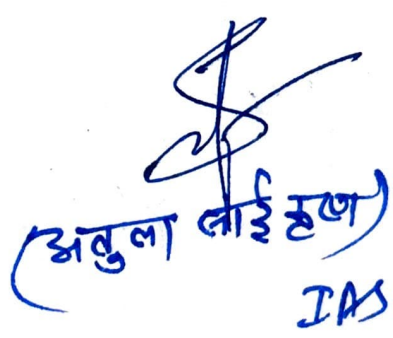 (अतुला लाईह्रण)
IAS